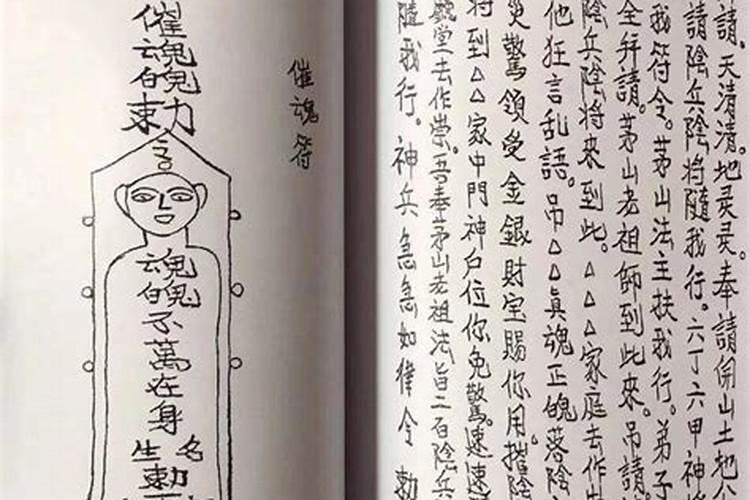 請。天清清。地灵灵。奉請開山土地公
請陰兵陰將隨我行。六丁六甲神將
我符令。茅山法主扶我行。弟子
全拜請。茅山老祖師到此來。吊請
陰兵陰將來到此。△△△家庭去作
他狂言乱語。吊△△真魂正魄落陰
災驚領受金銀財宝賜你用。摧陰
將到△△家中門神户位你免驚。速速
堂去作祟。吾奉茅山老祖法旨二百陰兵
隨我行。神兵急急如律令 勅
催魂符
催魂魄勅
魂魄不萬在身
名
生
勅